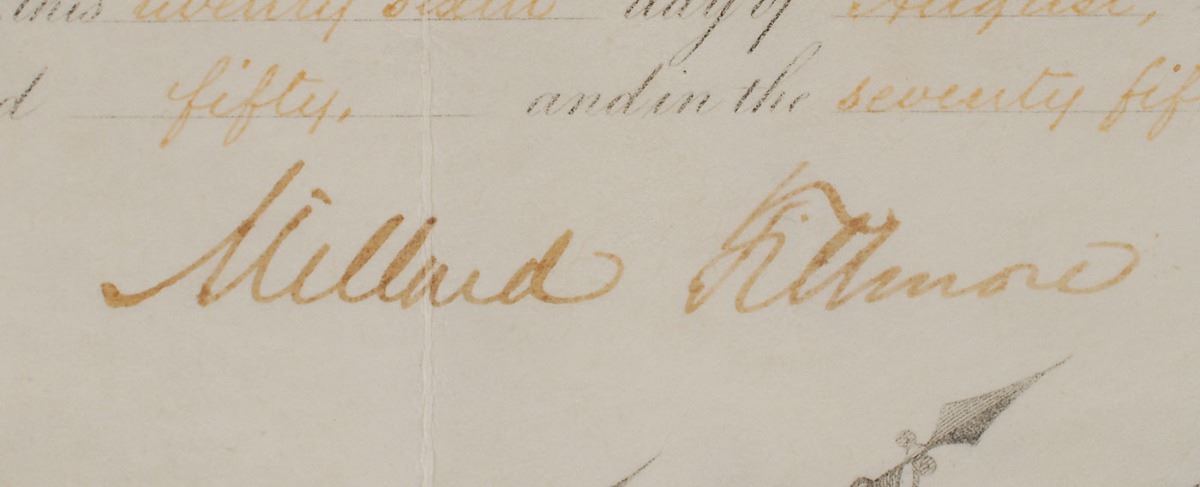 this twenty sixth day of August,
d fifty, and in the seventy fif
Millard Fillmore